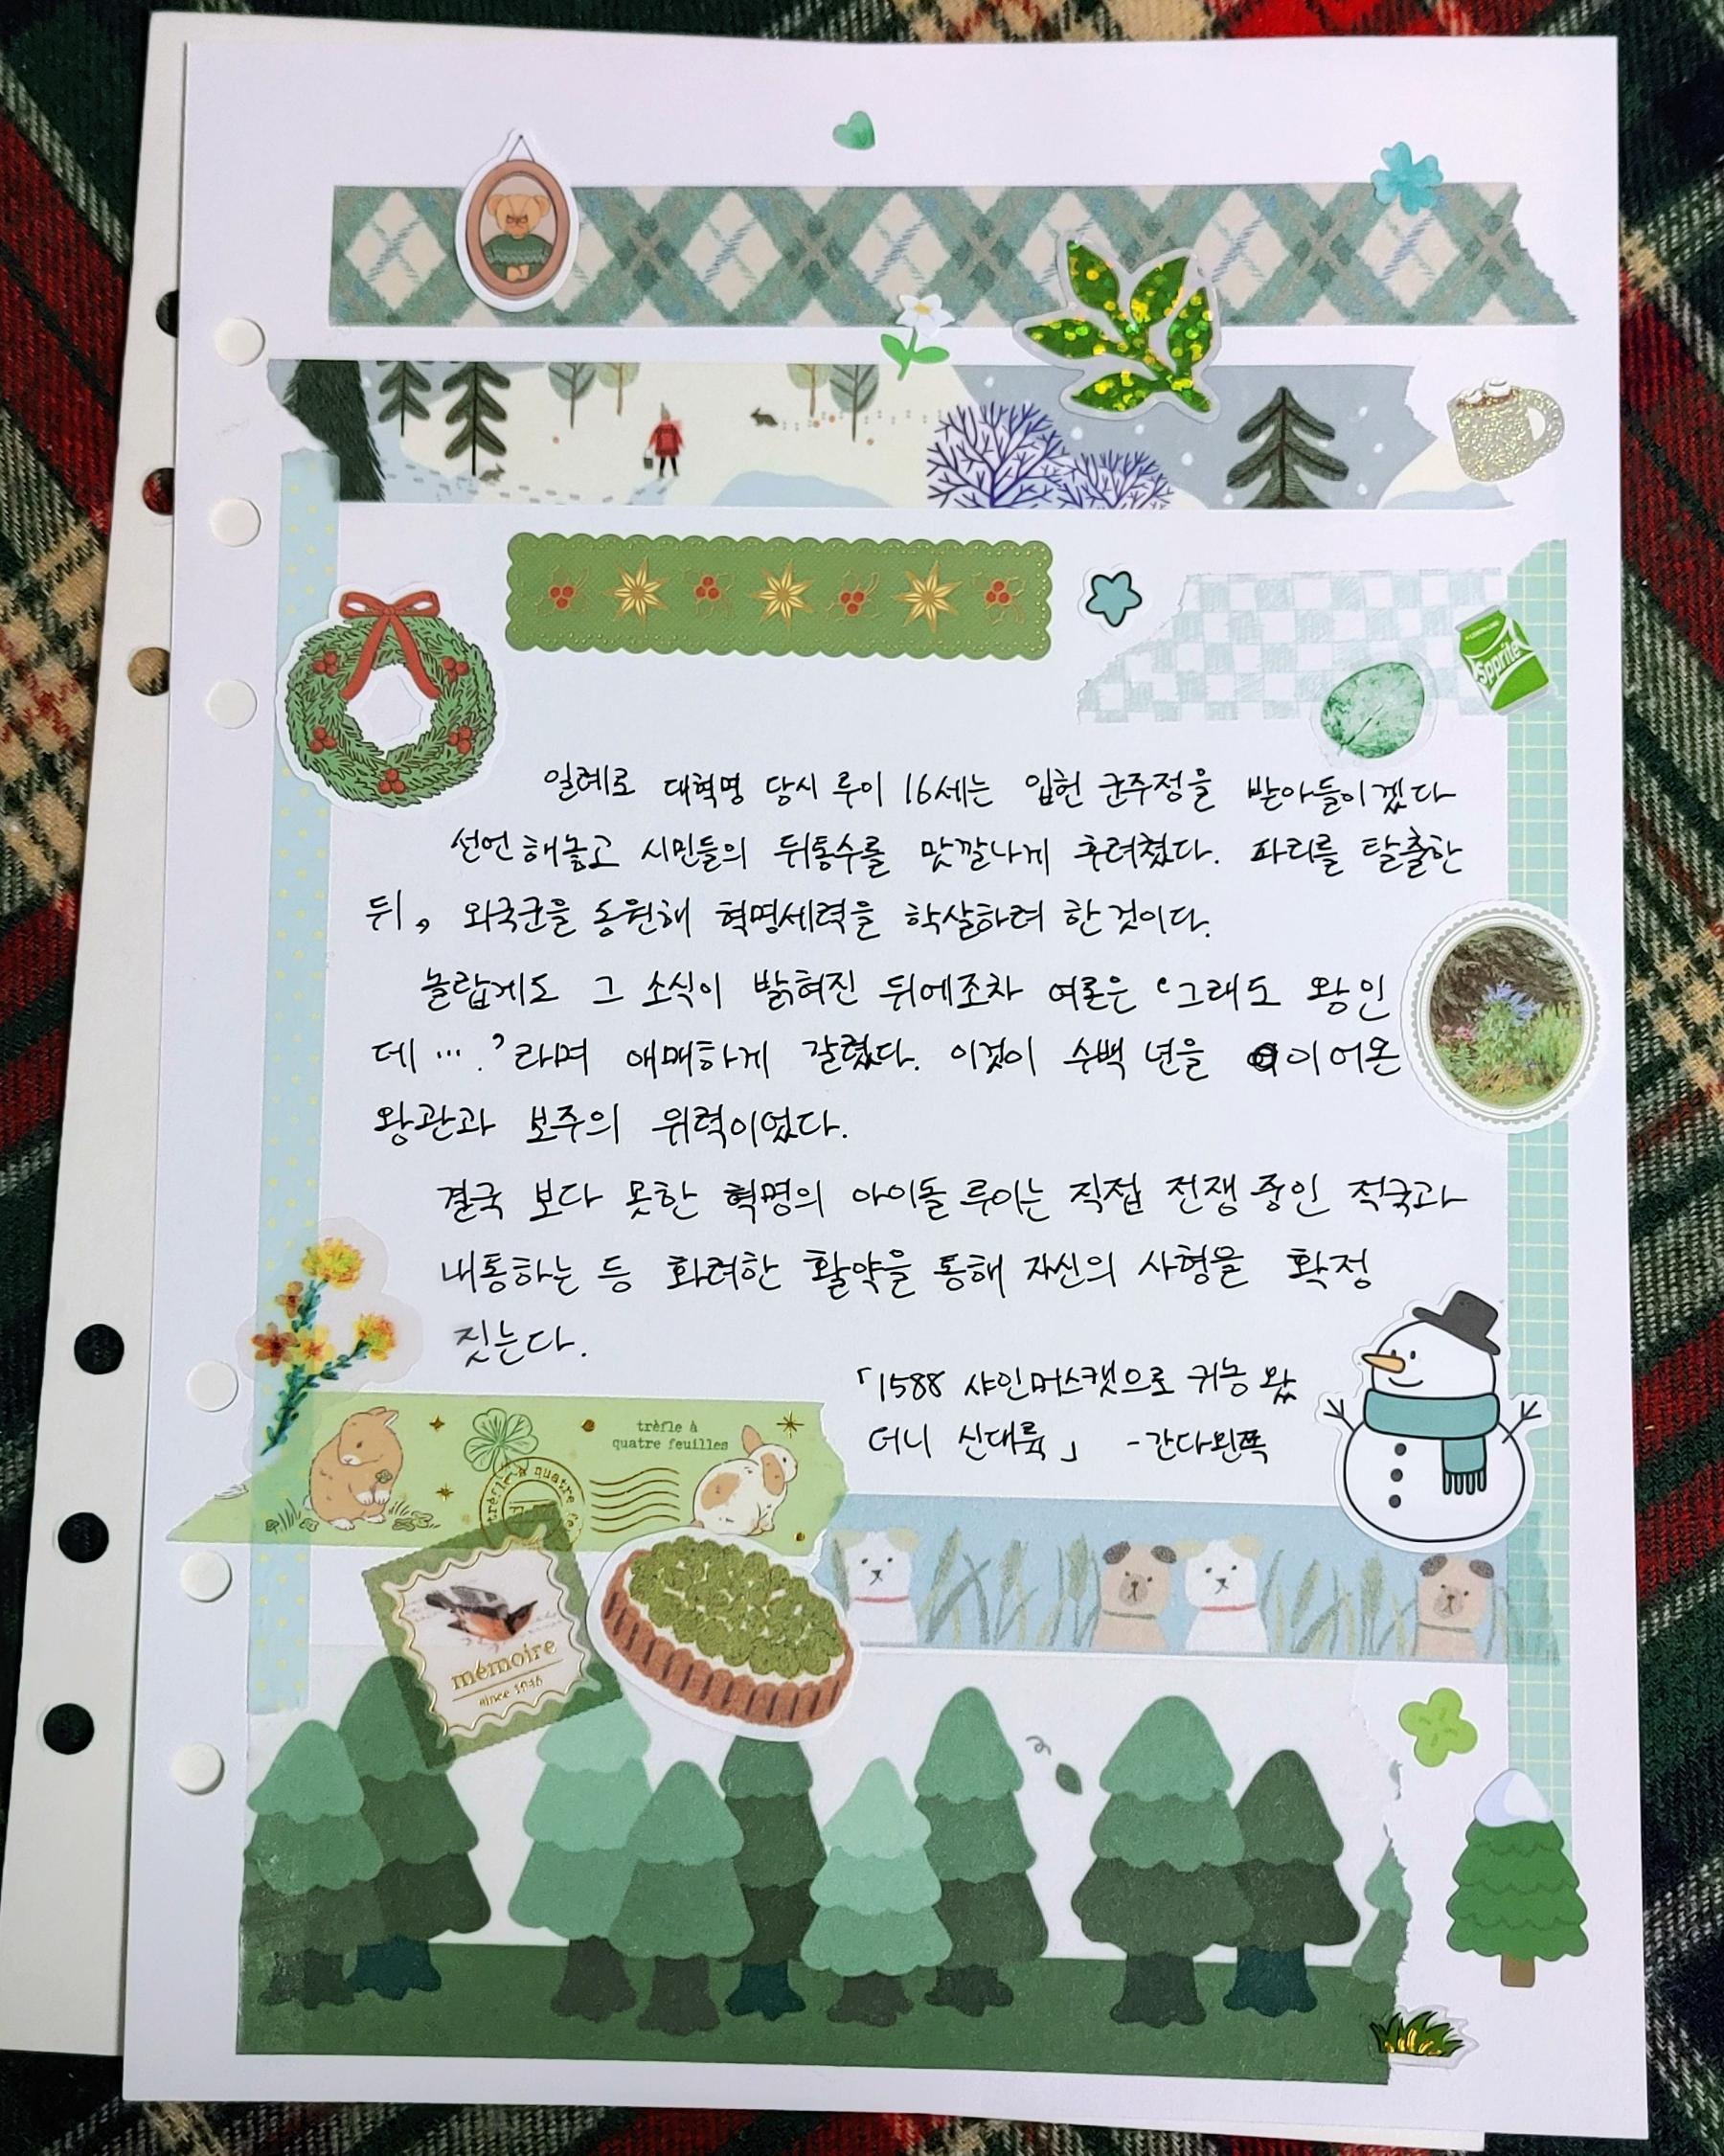 Spprite
일례로 대혁명 당시 루이 16세는 입헌 군주정을 받아들이겠다
선언해놓고 시민들의 뒤통수를 맛깔나게 후려쳤다. 파리를 탈출한
뒤, 외국군을 동원해 혁명세력을 학살하려 한 것이다.
놀랍게도 그 소식이 밝혀진 뒤에조차 여론은 '그래도 왕인
데….'라며 애매하게 갈렸다. 이것이 수백 년을 이어온
왕관과 보주의 위력이었다.
결국 보다 못한 혁명의 아이돌 루이는 직접 전쟁 중인 적국과
내통하는 등 화려한 활약을 통해 자신의 사형을 확정
짓는다.
「1588 샤인머스캣으로 귀농 왔
더니 신대륙」 -간다왼쪽
trèfle à
quatre feuilles
trèfle à quatre
mémoire
since 1946